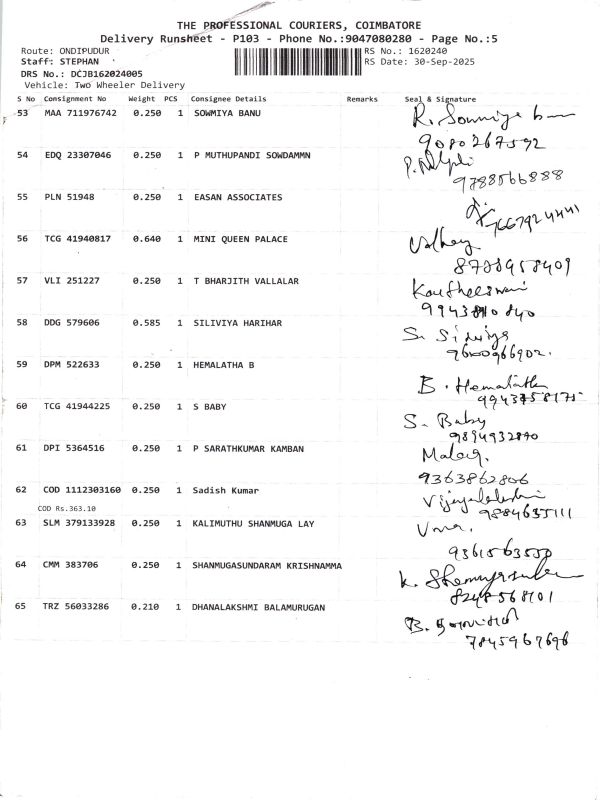 THE PROFESSIONAL COURIERS, COIMBATORE
Delivery Runsheet - P103 - Phone No.:9047080280 - Page No.:5
Route: ONDIPUDUR RS No.: 1620240
Staff: STEPHAN RS Date: 30-Sep-2025
DRS No.: DCJB162024005
Vehicle: Two Wheeler Delivery
S No Consignment No Weight PCS Consignee Details Remarks Seal & Signature
53 MAA 711976742 0.250 1 SOWMIYA BANU R. Sowmiya
9080267592
54 EDQ 23307046 0.250 1 P MUTHUPANDI SOWDAMMN
9788566888
55 PLN 51948 0.250 1 EASAN ASSOCIATES
7667924441
56 TCG 41940817 0.640 1 MINI QUEEN PALACE
8778958409
57 VLI 251227 0.250 1 T BHARJITH VALLALAR
9943810840
58 DDG 579606 0.585 1 SILIVIYA HARIHAR S.
9600966902.
59 DPM 522633 0.250 1 HEMALATHA B B. Hemalatha
60 TCG 41944225 0.250 1 S BABY S. Baby
9894932840
61 DPI 5364516 0.250 1 P SARATHKUMAR KAMBAN
9363862806
62 COD 1112303160 0.250 1 Sadish Kumar Vijayalakshmi
9884635111
COD Rs.363.10
63 SLM 379133928 0.250 1 KALIMUTHU SHANMUGA LAY Uma.
9361563550
64 CMM 383706 0.250 1 SHANMUGASUNDARAM KRISHNAMMA K.
8248568101
65 TRZ 56033286 0.210 1 DHANALAKSHMI BALAMURUGAN B.
7845967696